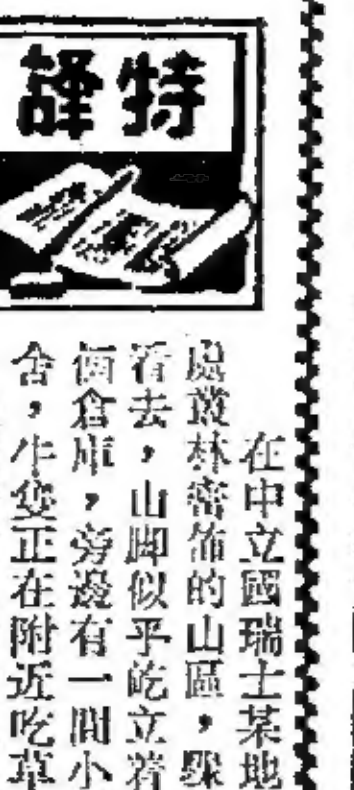 特譯
在中立國瑞士某地
處叢林密佈的山區，驟
看去，山脚似乎屹立着
個倉庫，旁邊有一間小
舍，牛隻正在附近吃草